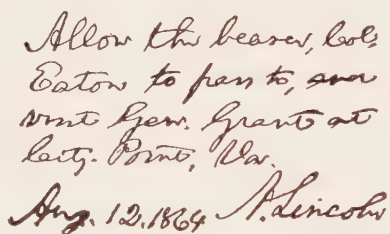 Allow the bearer, Col.
Eaton to pass to, and
visit Gen. Grant at
City-Point, Va.
Aug. 12. 1864 A. Lincoln